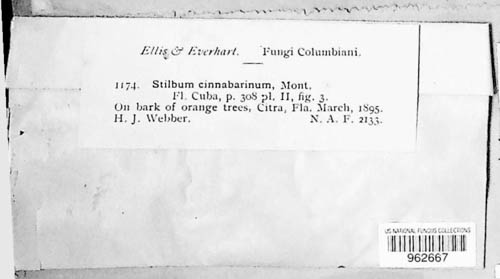 Ellis & Everhart. Fungi Columbiani.
1174. Stilbum cinnabarinum, Mont.
Fl. Cuba, p. 308 pl. II, fig. 3.
On bark of orange trees, Citra, Fla. March, 1895.
H. J. Webber. N. A. F. 2133.
US NATIONAL FUNGUS COLLECTIONS
962667